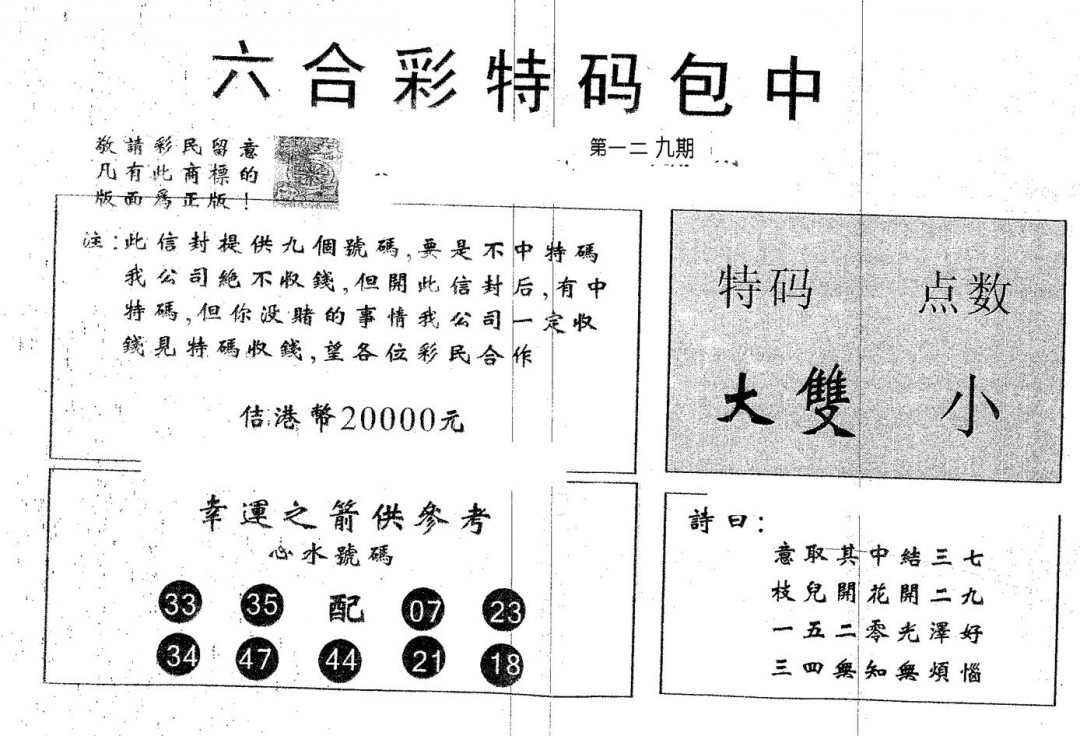 六合彩特码包中
第一二九期
敬請彩民留意
凡有此商標的
版面爲正版！
注：此信封提供九個號碼，要是不中特碼
我公司絶不收錢，但開此信封后，有中
特碼，但你没賭的事情我公司一定收
錢見特碼收錢，望各位彩民合作
佶港幣20000元
特码 点数
大雙 小
幸運之箭供參考
心水號碼
33 35 配 07 23
34 47 44 21 18
詩曰：
意取其中結三七
枝兒開花開二九
一五二零光澤好
三四無知無煩惱